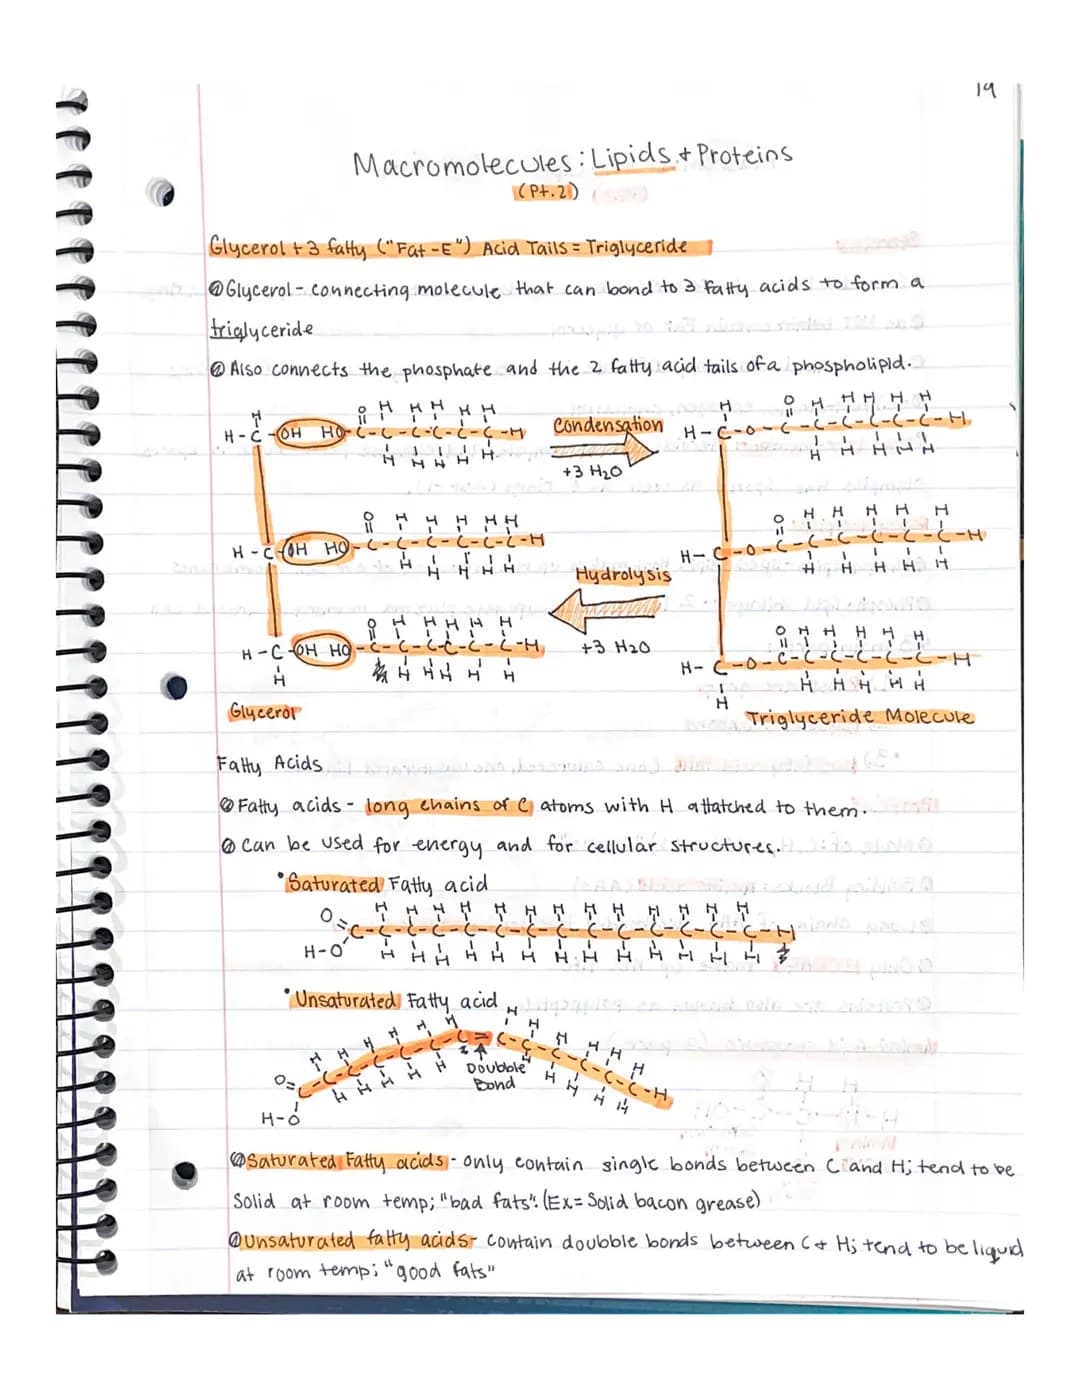 19
Macromolecules: Lipids + Proteins
(Pt.2)
Glycerol + 3 fatty ("Fat-E") Acid Tails = Triglyceride
Glycerol - connecting molecule that can bond to 3 fatty acids to form a
triglyceride
Also connects the phosphate and the 2 fatty acid tails of a phospholipid.
H O H H H H H H O H H H H H
H-C-OH HO-C-C-C-C-C-C-H Condensation H-C-O-C-C-C-C-C-C-H
H H H H H +3 H₂O H H H H H
O H H H H H O H H H H H
H-C-OH HO-C-C-C-C-C-C-H H-C-O-C-C-C-C-C-C-H
H H H H H Hydrolysis H H H H H
O H H H H H O H H H H H
H-C-OH HO-C-C-C-C-C-C-H +3 H₂O H-C-O-C-C-C-C-C-C-H
H H H H H H H H H H H H
Glycerol Triglyceride Molecule
Fatty Acids
Fatty acids - long chains of C atoms with H attatched to them.
Can be used for energy and for cellular structures.
• Saturated Fatty acid
O H H H H H H H H H H H H H
=C-C-C-C-C-C-C-C-C-C-C-C-C-C-H
H-O H H H H H H H H H H H H H
• Unsaturated Fatty acid
H H H H H H H H H H H
O=C-C-C-C-C-C-C=C-C-C-C-C-C-C-H
H H H H H H H H H
Doubble
Bond
H-O
Saturated Fatty acids - only contain single bonds between C and H; tend to be
Solid at room temp; "bad fats". (Ex= Solid bacon grease)
Unsaturated fatty acids - contain doubble bonds between C + H; tend to be liquid
at room temp; "good fats"